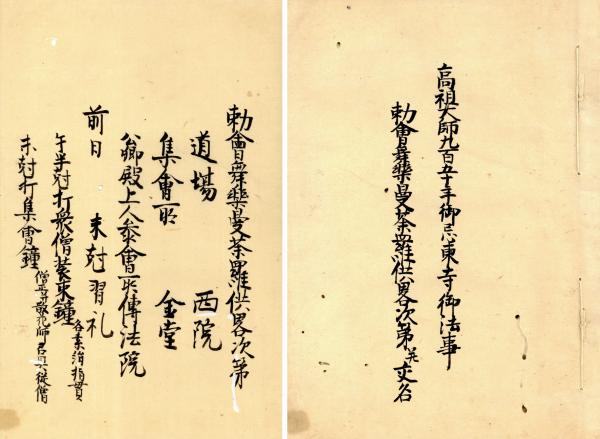 高祖大師九百五十年御忌東寺御法事
勅會舞樂曼荼羅供畧次第并交名
勅會舞樂曼荼羅供畧次第
道場　西院
集會所　金堂
公卿殿上人參會所傳法院
前日　未尅習礼
午半尅打衆僧裝束鐘 各素絹指貫
未尅打集會鐘